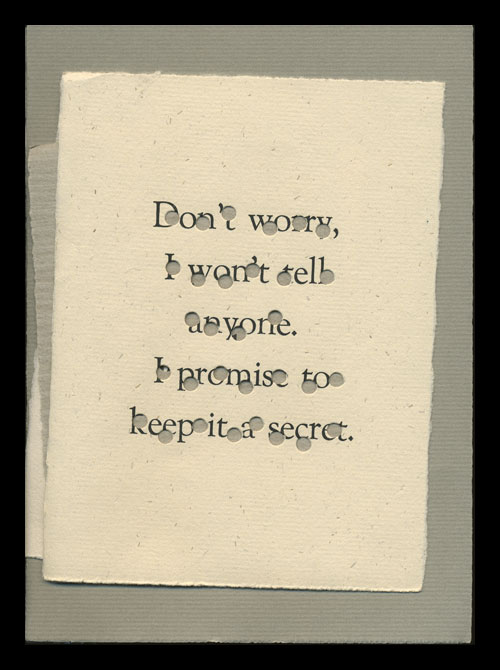 Don't worry,
I won't tell
anyone.
I promise to
keep it a secret.